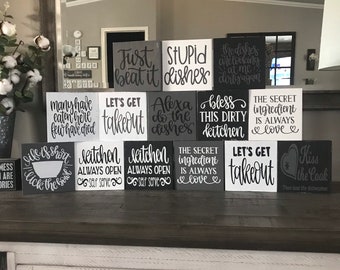 Just
beat it
stupid
dishes
the dishes
are looking
at me
dirty again
many have
eaten here
few have died
LET'S GET
takeout
Alexa
do the
dishes
bless
THIS DIRTY
kitchen
THE SECRET
ingredient
IS ALWAYS
love
life is short
lick the bowl
kitchen
ALWAYS OPEN
SELF SERVE
kitchen
ALWAYS OPEN
SELF SERVE
THE SECRET
ingredient
IS ALWAYS
love
LET'S GET
takeout
Kiss
the Cook